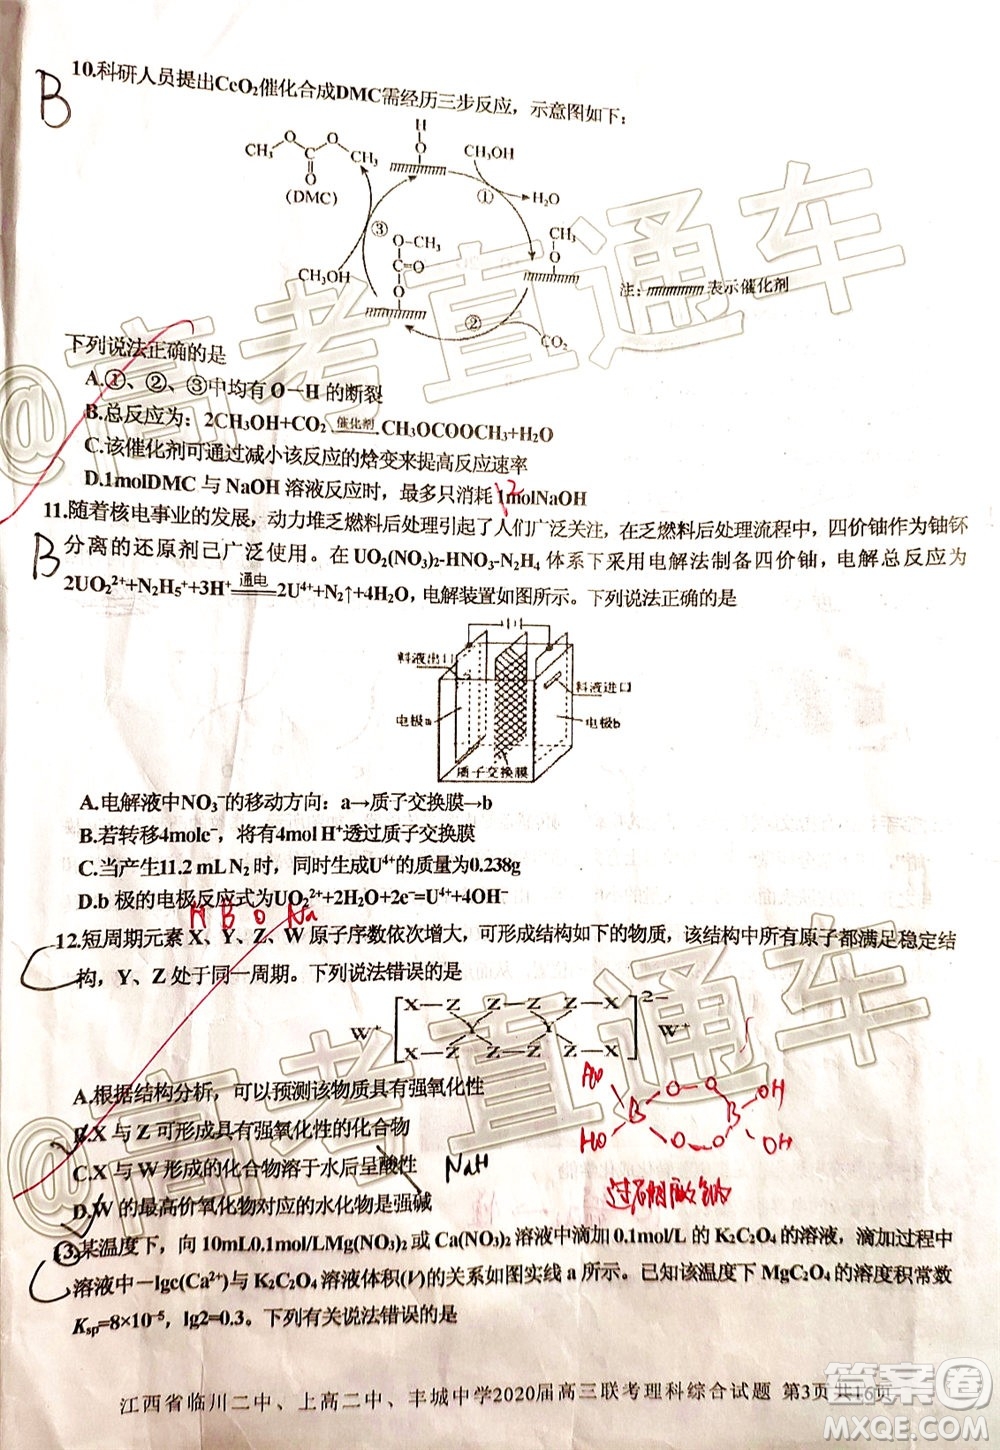 B
10.科研人员提出CeO₂催化合成DMC需经历三步反应，示意图如下：
CH₃ O O CH₃ O (DMC)
H O
CH₃OH ① H₂O
CH₃ O
③ CH₃OH
O-CH₃ C=O O
② CO₂
注: 表示催化剂
下列说法正确的是
A.①、②、③中均有 O－H 的断裂
B.总反应为：2CH₃OH+CO₂ 催化剂 CH₃OCOOCH₃+H₂O
C.该催化剂可通过减小该反应的焓变来提高反应速率
D.1molDMC 与 NaOH 溶液反应时，最多只消耗 1molNaOH
2
B
11.随着核电事业的发展，动力堆乏燃料后处理引起了人们广泛关注，在乏燃料后处理流程中，四价铀作为铀钚
分离的还原剂己广泛使用。在 UO₂(NO₃)₂-HNO₃-N₂H₄ 体系下采用电解法制备四价铀，电解总反应为
2UO₂²⁺+N₂H₅⁺+3H⁺ 通电 2U⁴⁺+N₂↑+4H₂O，电解装置如图所示。下列说法正确的是
料液出口
料液进口
电极a
电极b
质子交换膜
A.电解液中NO₃⁻的移动方向：a→质子交换膜→b
B.若转移4mole⁻，将有4mol H⁺透过质子交换膜
C.当产生11.2 mL N₂ 时，同时生成U⁴⁺的质量为0.238g
D.b 极的电极反应式为UO₂²⁺+2H₂O+2e⁻=U⁴⁺+4OH⁻
H B O Na
C
12.短周期元素 X、Y、Z、W 原子序数依次增大，可形成结构如下的物质，该结构中所有原子都满足稳定结
构，Y、Z 处于同一周期。下列说法错误的是
W⁺ [ X—Z Z—Z Z—X ]²⁻ W⁺
Y Y
X—Z Z—Z Z—X
A.根据结构分析，可以预测该物质具有强氧化性
B.X 与 Z 可形成具有强氧化性的化合物
C.X 与 W 形成的化合物溶于水后呈酸性
NaH
D.W 的最高价氧化物对应的水化物是强碱
HO B O O B OH
HO O O OH
C
13.某温度下，向 10mL0.1mol/LMg(NO₃)₂或 Ca(NO₃)₂ 溶液中滴加 0.1mol/L 的 K₂C₂O₄ 的溶液，滴加过程中
溶液中－lgc(Ca²⁺)与 K₂C₂O₄ 溶液体积(V)的关系如图实线 a 所示。已知该温度下 MgC₂O₄ 的溶度积常数
Ksp=8×10⁻⁵，lg2=0.3。下列有关说法错误的是
江西省临川二中、上高二中、丰城中学2020届高三联考理科综合试题 第3页 共16页
@高考直通车
@高考直通车
答案圈
MXQE.COM